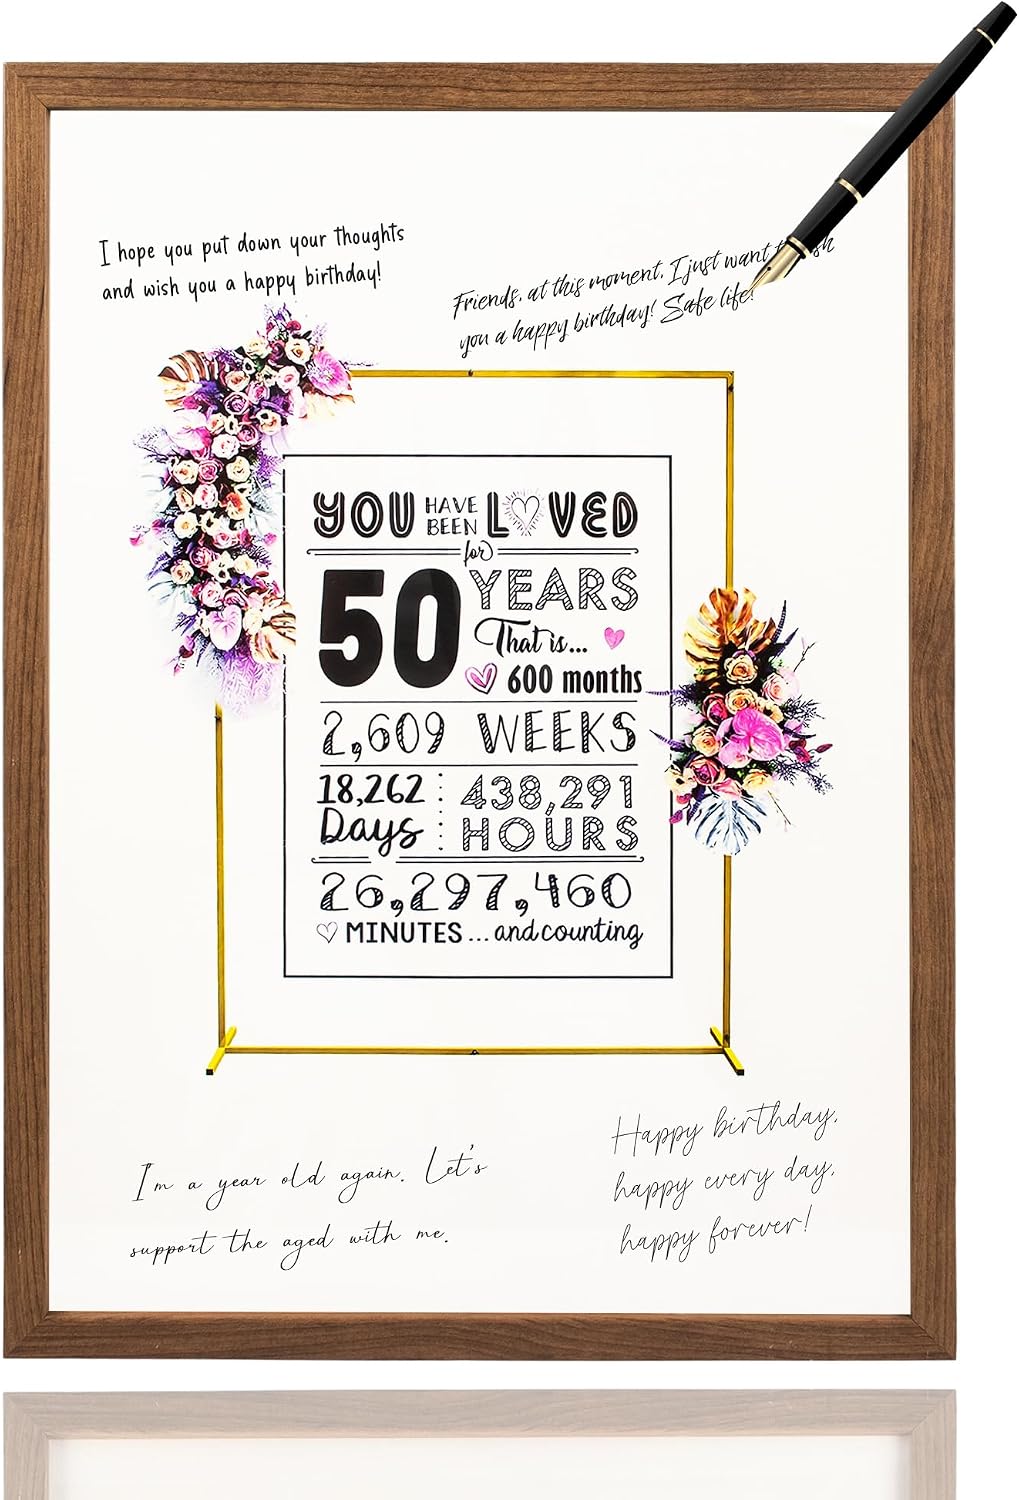 I hope you put down your thoughts
and wish you a happy birthday!
Friends, at this moment, I just want
you a happy birthday! Safe life!
YOU HAVE BEEN LOVED
for
50 YEARS
That is...
600 months
2,609 WEEKS
18,262 Days
438,291 HOURS
26,297,460
MINUTES ... and counting
I'm a year old again. Let's
support the aged with me.
Happy birthday,
happy every day,
happy forever!